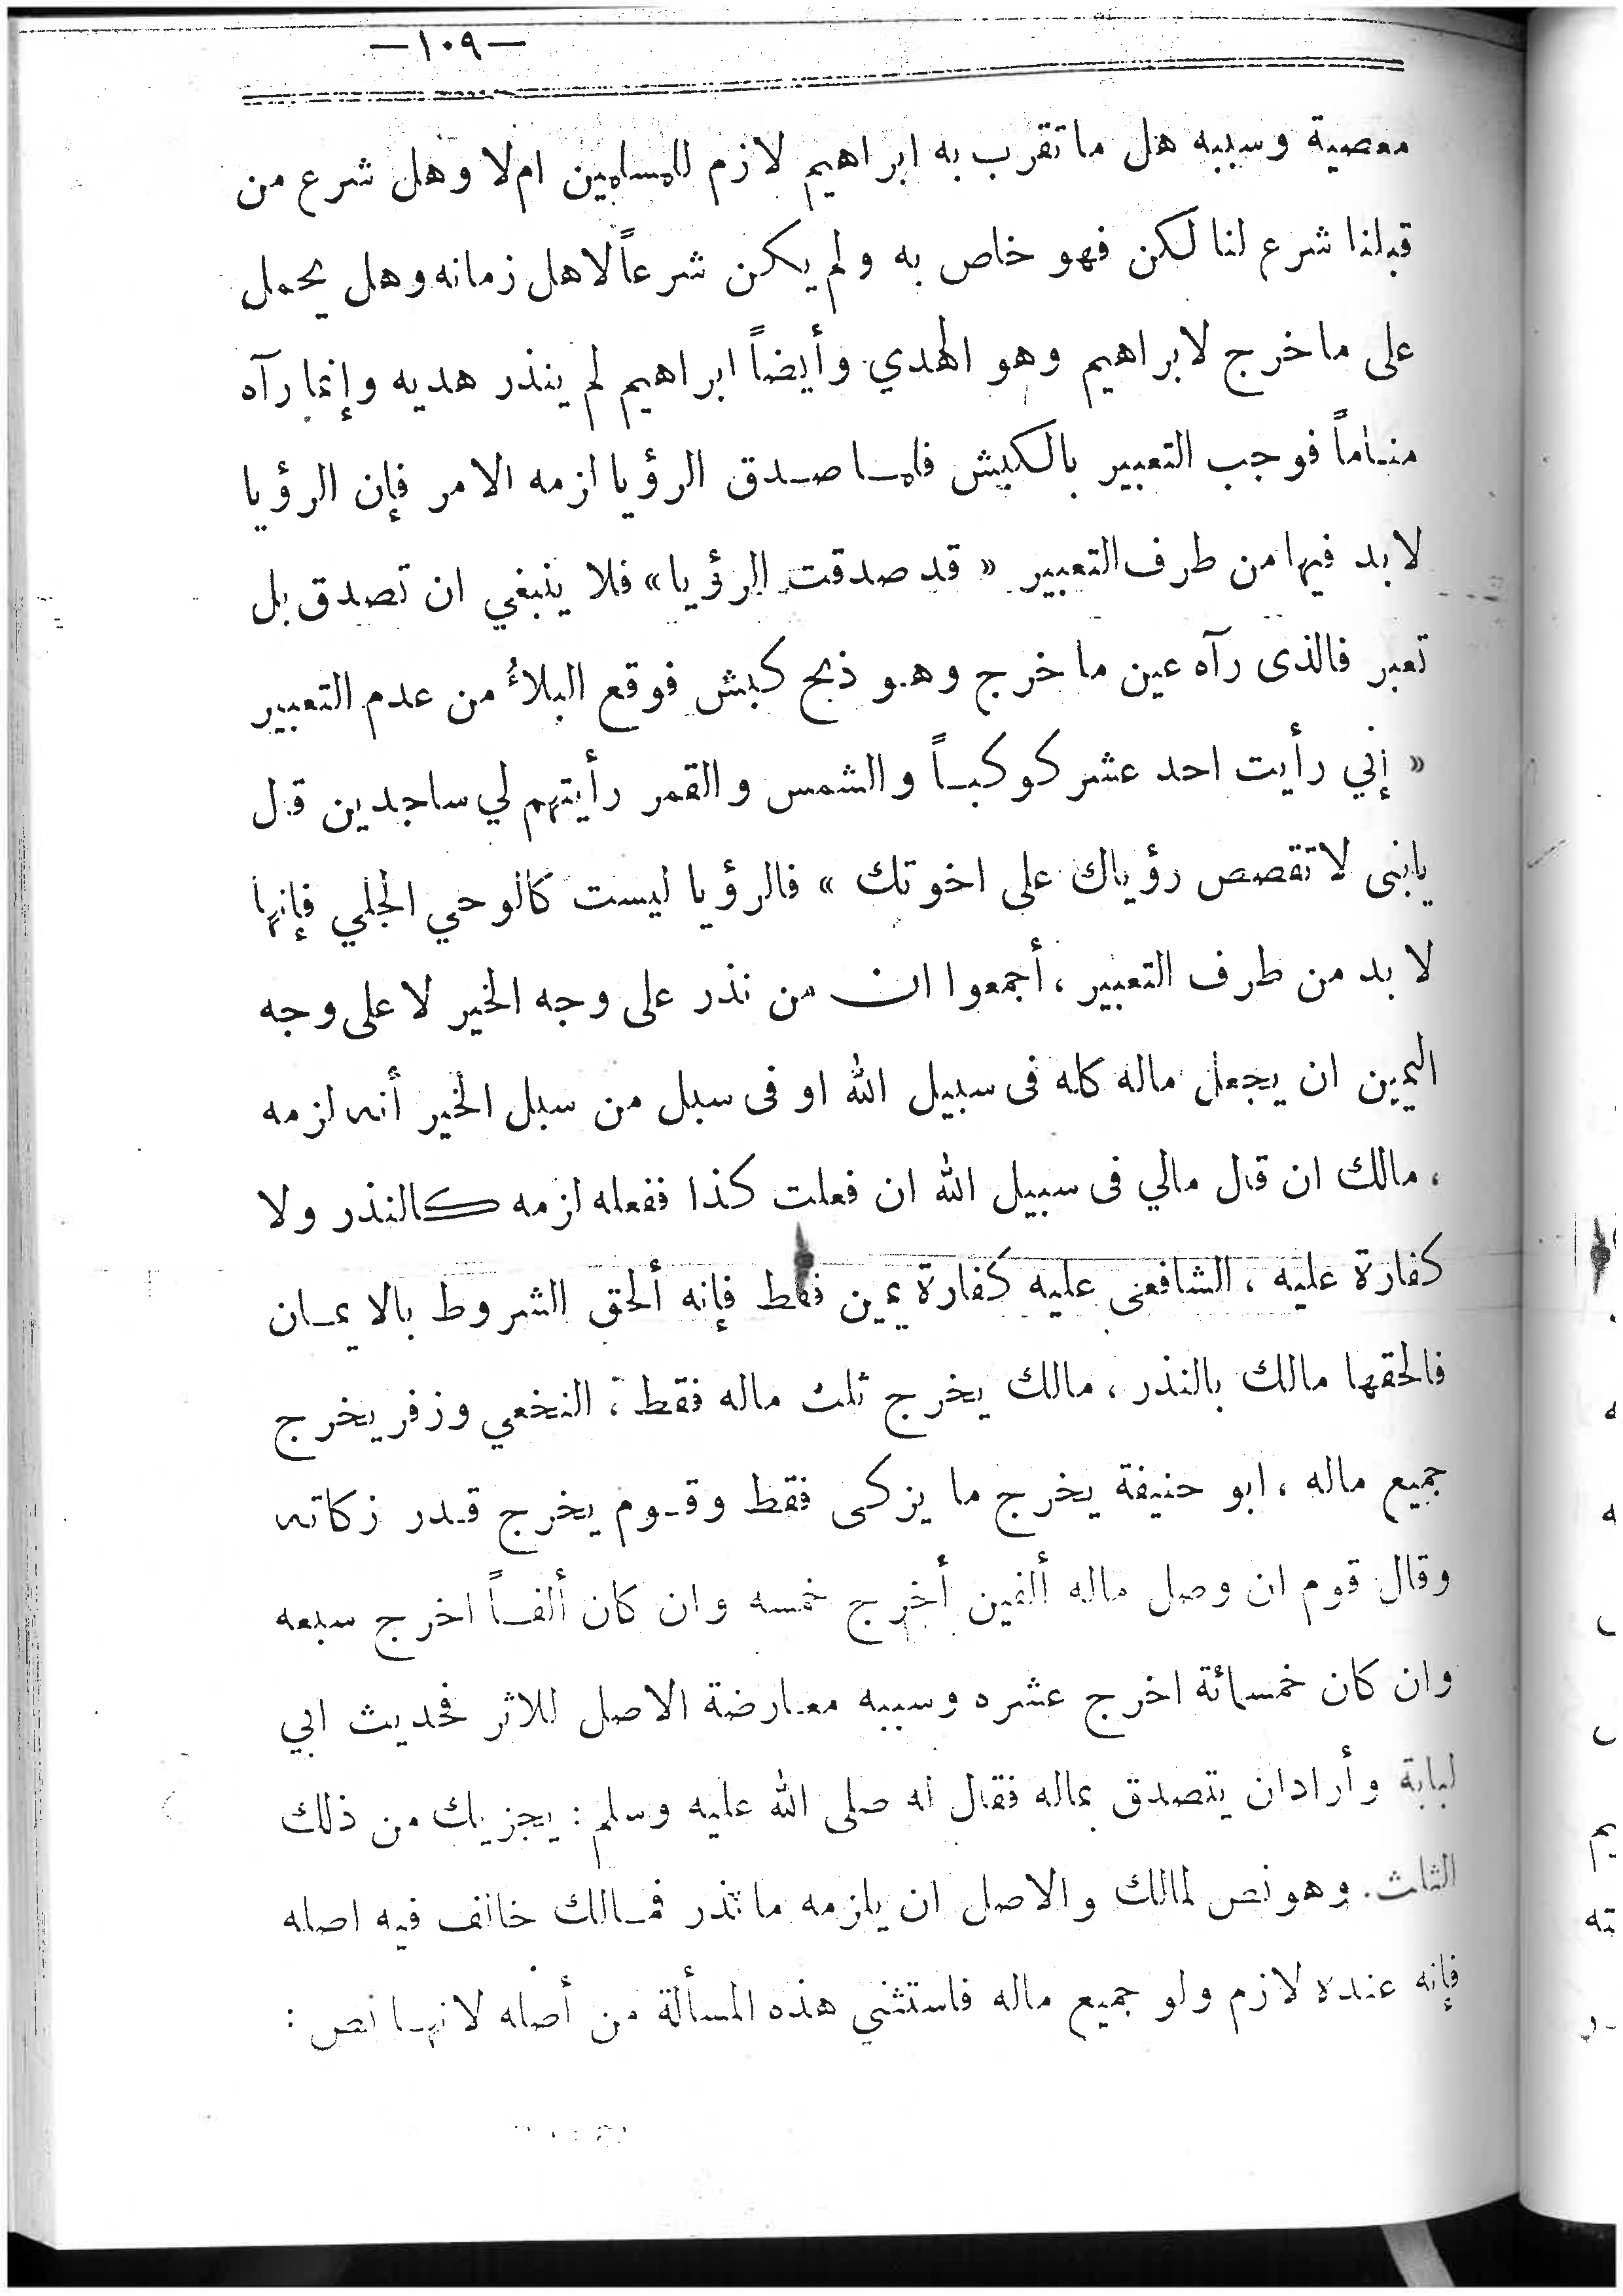 —١٠٩—
معصية وسببه هل ما تقرب به ابراهيم لازم للمسلمين ام لا وهل شرع من
قبلنا شرع لنا لكن فهو خاص به ولم يكن شرعاً لاهل زمانه وهل يحمل
على ما خرج لابراهيم وهو الهدي وأيضاً ابراهيم لم ينذر هديه وإنما رآه
مناماً فوجب التعبير بالكبش فلما صدق الرؤيا لزمه الامر فإن الرؤيا
لا بد فيها من طرف التعبير « قد صدقت الرؤيا» فلا ينبغي ان تصدق بل
تعبر فالذى رآه عين ما خرج وهو ذبح كبش فوقع البلاءُ من عدم التعبير
« إني رأيت احد عشر كوكباً والشمس والقمر رأيتهم لي ساجدين قال
يابنى لا تقصص رؤياك على اخوتك » فالرؤيا ليست كالوحي الجلي فإنها
لا بد من طرف التعبير ، أجمعوا ان من نذر على وجه الخير لا على وجه
اليمين ان يجعل ماله كله فى سبيل الله او فى سبل من سبل الخير أنه لزمه
، مالك ان قال مالي فى سبيل الله ان فعلت كذا ففعله لزمه كالنذر ولا
كفارة عليه ، الشافعى عليه كفارة يمين فقط فإنه ألحق الشروط بالايمان
فالحقها مالك بالنذر ، مالك يخرج ثلث ماله فقط ، النخعي وزفر يخرج
جميع ماله ، ابو حنيفة يخرج ما يزكى فقط وقوم يخرج قدر زكاته
وقال قوم ان وصل ماله ألفين أخرج خمسه وان كان ألفاً اخرج سبعه
وان كان خمسمائة اخرج عشره وسببه معارضة الاصل للاثر فحديث ابي
لبابة وأراد ان يتصدق بماله فقال له صلى الله عليه وسلم : يجزيك من ذلك
الثلث . وهو نص لمالك والاصل ان يلزمه ما نذر فمالك خالف فيه اصله
فإنه عنده لازم ولو جميع ماله فاستثنى هذه المسألة من أصله لانها نص :